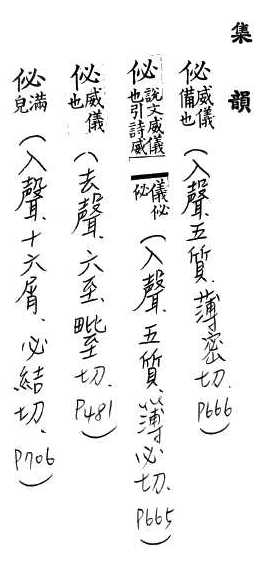 集韻
佖 威儀備也 (入聲、五質、薄密切、P666)
佖 說文威儀也引詩威儀佖佖 (入聲、五質、薄必切、P665)
佖 威儀也 (去聲、六至、毗至切、P481)
佖 滿皃 (入聲、十六屑、必結切、P706)